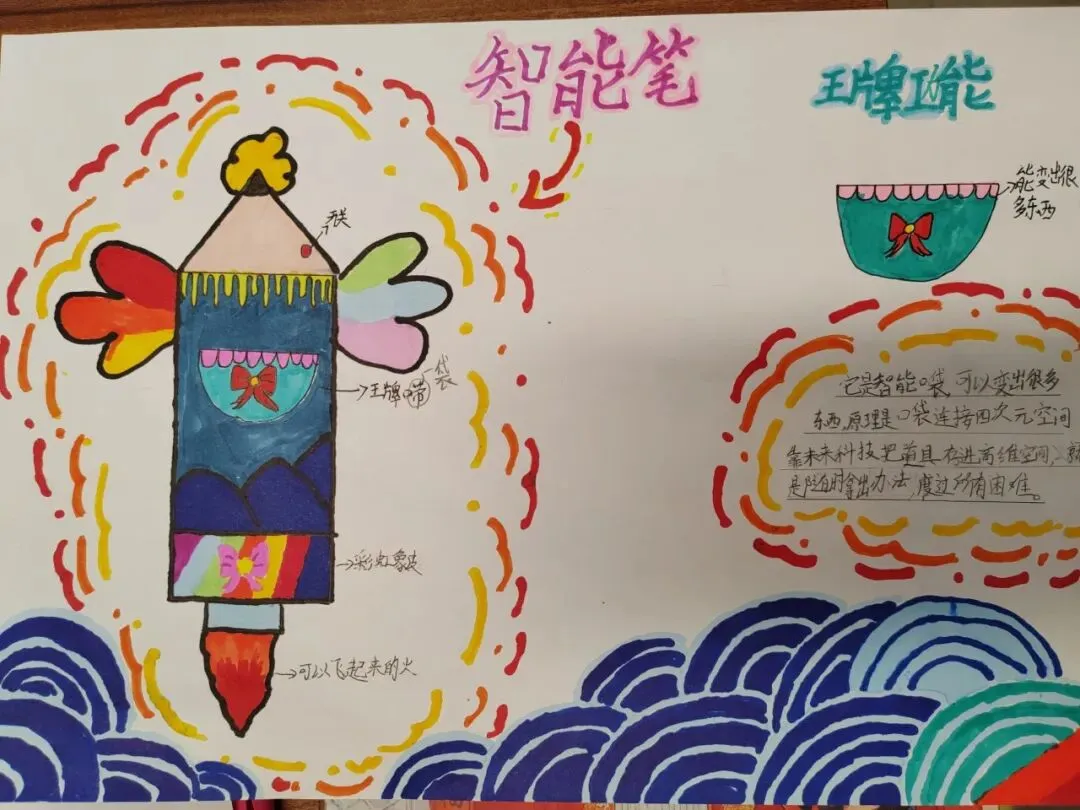 智能笔
王牌功能
能变出很
多东西
开关
王牌口带
袋
彩虹象皮
可以飞起来的火
它是智能口袋,可以变出很多
东西,原理是口袋连接四次元空间
靠未来科技把道具存进高维空间,就
是随时拿出办法,度过所有困难。